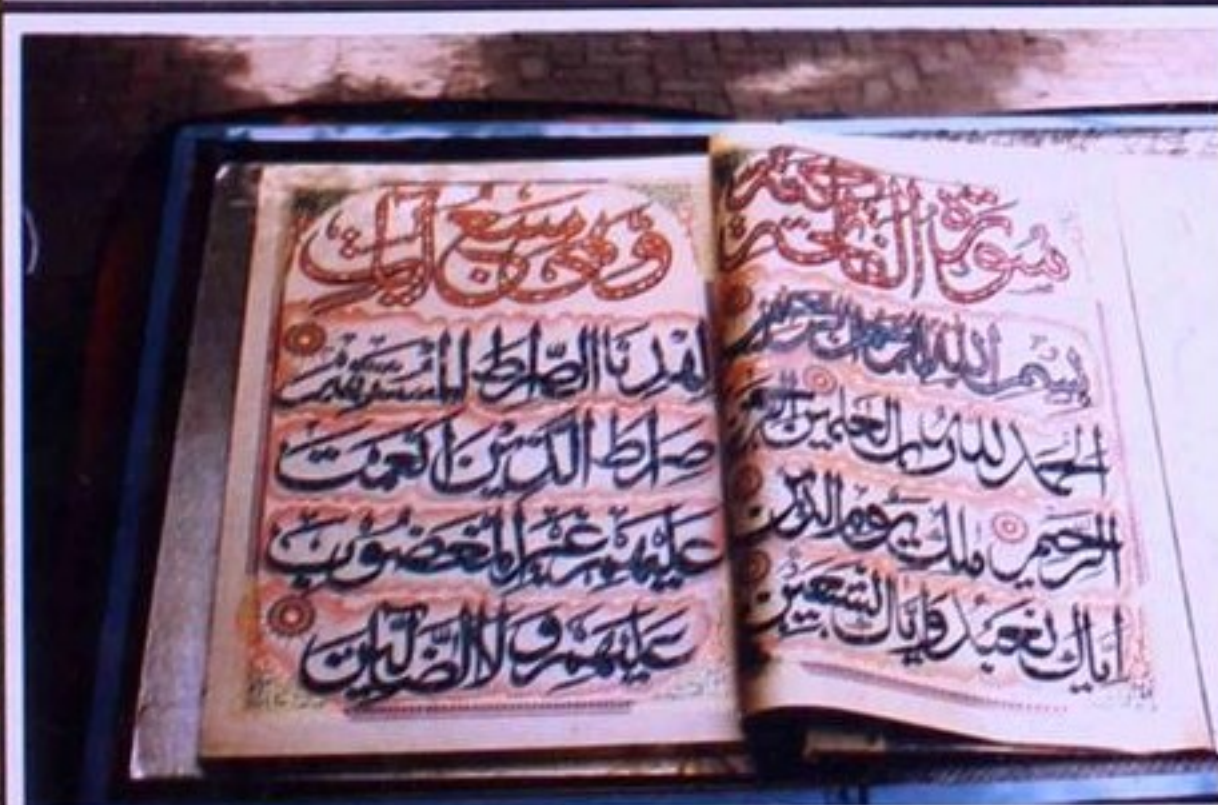 سورة الفاتحة
بسم الله الرحمن الرحيم
الحمد لله رب العلمين الرحمن
الرحيم ملك يوم الدين
اياك نعبد واياك نستعين
وهي سبع آيات
اهدنا الصراط المستقيم
صراط الذين انعمت
عليهم غير المغضوب
عليهم ولا الضالين